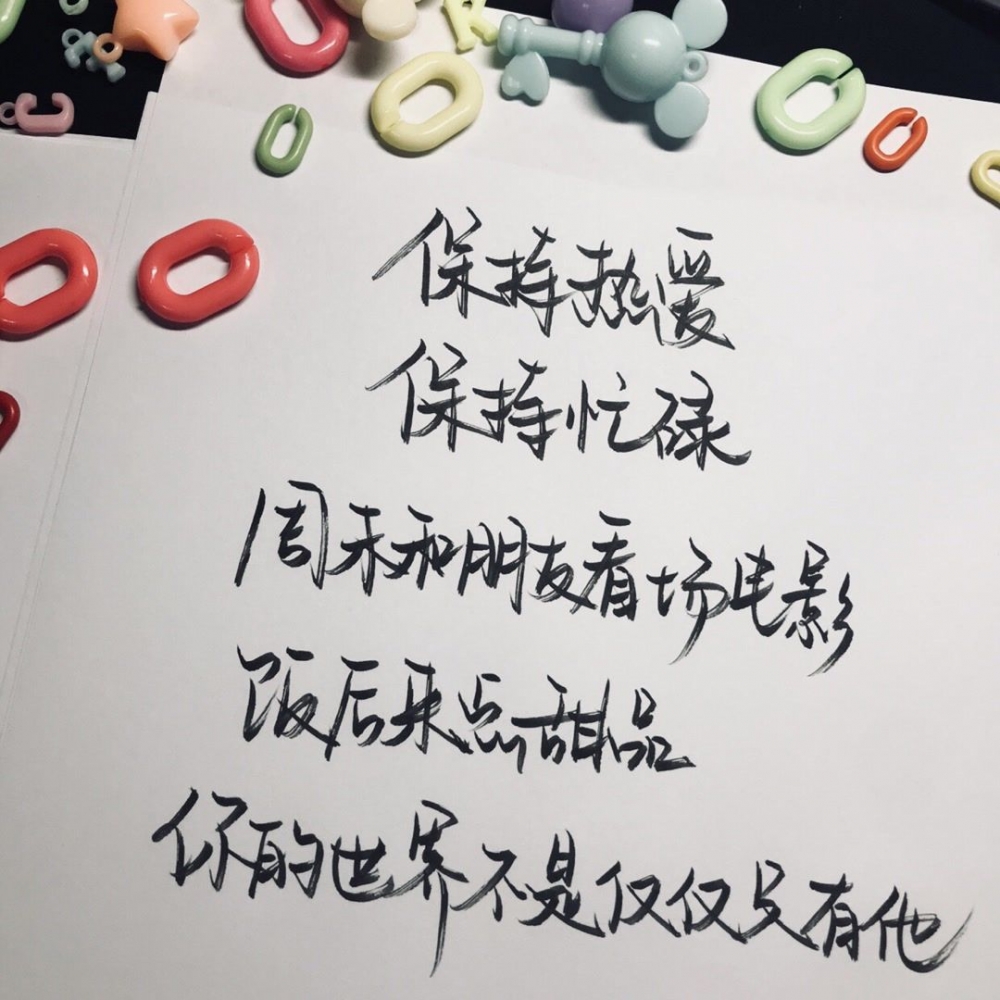 保持热爱
保持忙碌
周末和朋友看场电影
饭后来点甜品
你的世界不是仅仅只有他